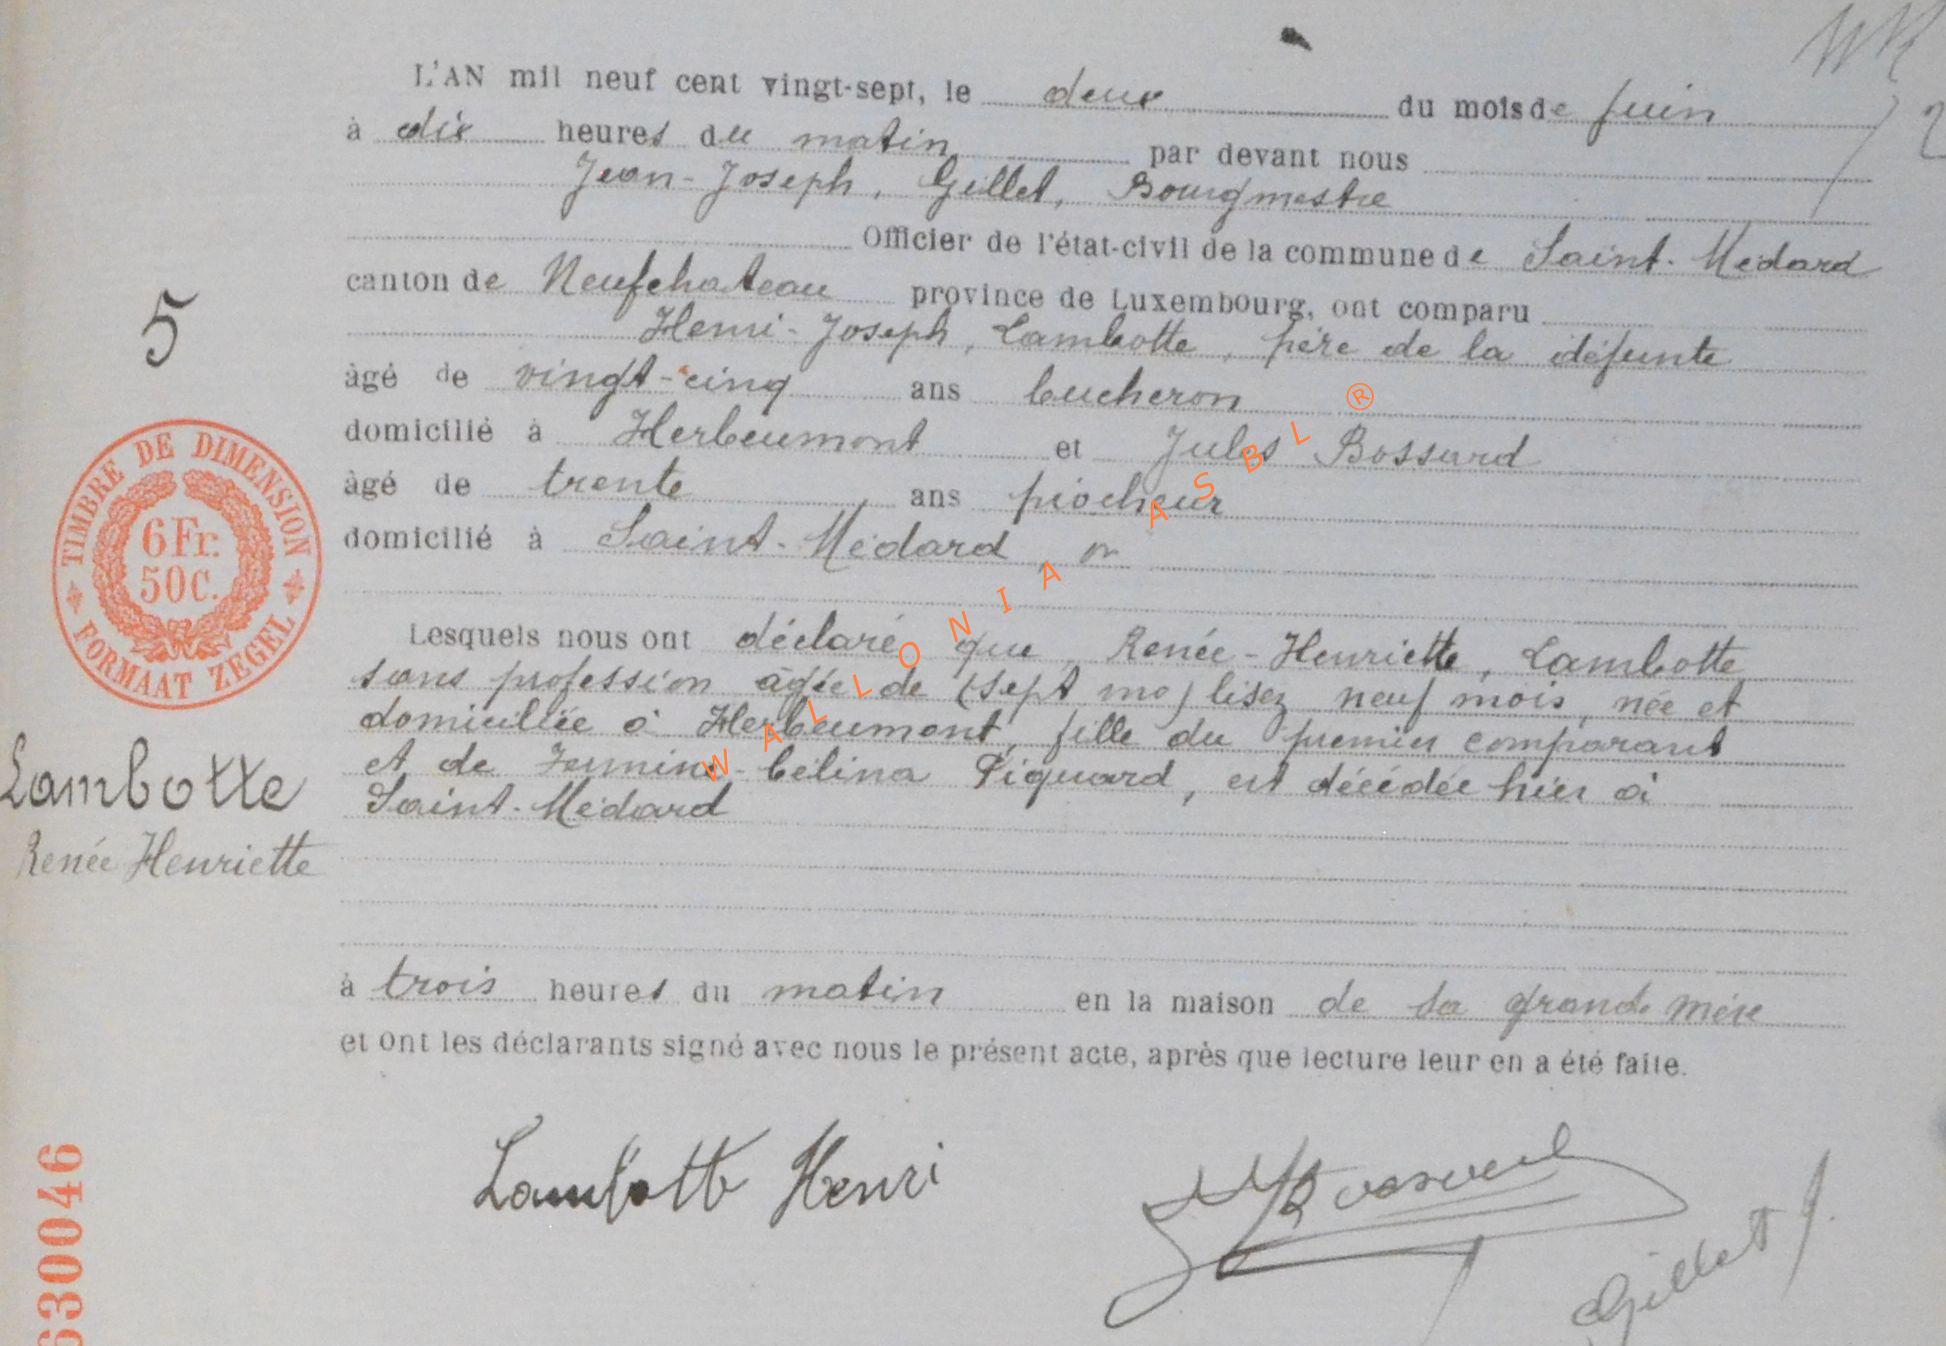 L'AN mil neuf cent vingt-sept, le deux du mois de juin
à dix heures du matin par devant nous
Jean-Joseph, Gillet, Bourgmestre
Officier de l'état-civil de la commune de Saint-Médard
canton de Neufchateau province de Luxembourg, ont comparu
Henri-Joseph, Lambotte, père de la défunte
âgé de vingt-cinq ans bucheron
domicilié à Herbeumont et Jules Bossard
âgé de trente ans piocheur
domicilié à Saint-Médard
5
TIMBRE DE DIMENSION
6 Fr.
50 C.
FORMAAT ZEGEL
Lesquels nous ont déclaré que Renée-Henriette, Lambotte
sans profession âgée de (sept mo) lisez neuf mois, née et
domiciliée à Herbeumont, fille du premier comparant
et de -Célina Piquard, est décédée hier à
Saint-Médard
Lambotte
Renée Henriette
à trois heures du matin en la maison de sa grand-mère
et ont les déclarants signé avec nous le présent acte, après que lecture leur en a été faite.
Lambotte Henri
Gillet J.
630046
WALLONIA ASBL ®